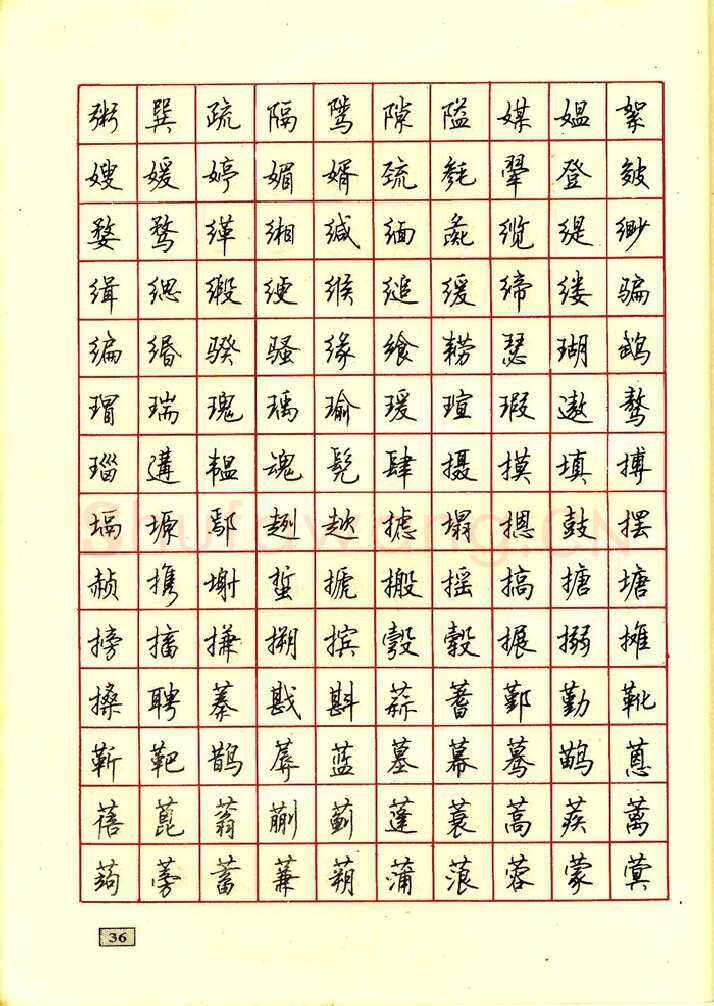 粥 巽 疏 隔 骘 隙 隘 媒 媪 絮
嫂 媛 婷 媚 婿 巯 毵 翚 登 皴
婺 骛 缂 缃 缄 缅 彘 缆 缇 缈
缉 缌 缎 缏 缑 缒 缓 缔 缕 骗
编 缗 骙 骚 缘 飨 耢 瑟 瑚 鹉
瑁 瑞 瑰 瑀 瑜 瑗 瑄 瑕 遨 骜
瑙 遘 韫 魂 髡 肆 摄 摸 填 搏
塥 塬 鄢 趔 趑 摅 塌 摁 鼓 摆
赪 携 塮 蜇 搋 搬 摇 搞 搪 塘
搒 搐 搛 搠 摈 彀 毂 搌 搦 摊
搡 聘 蓁 戡 斟 蒜 蓍 鄞 勤 靴
靳 靶 鹊 蓐 蓝 墓 幕 蓦 鹋 蒽
蓓 蓖 蓊 蒯 蓟 蓬 蓑 蒿 蒺 蓠
蒟 蒡 蓄 蒹 蒴 蒲 蒗 蓉 蒙 蓂
Shufawang.CN
36